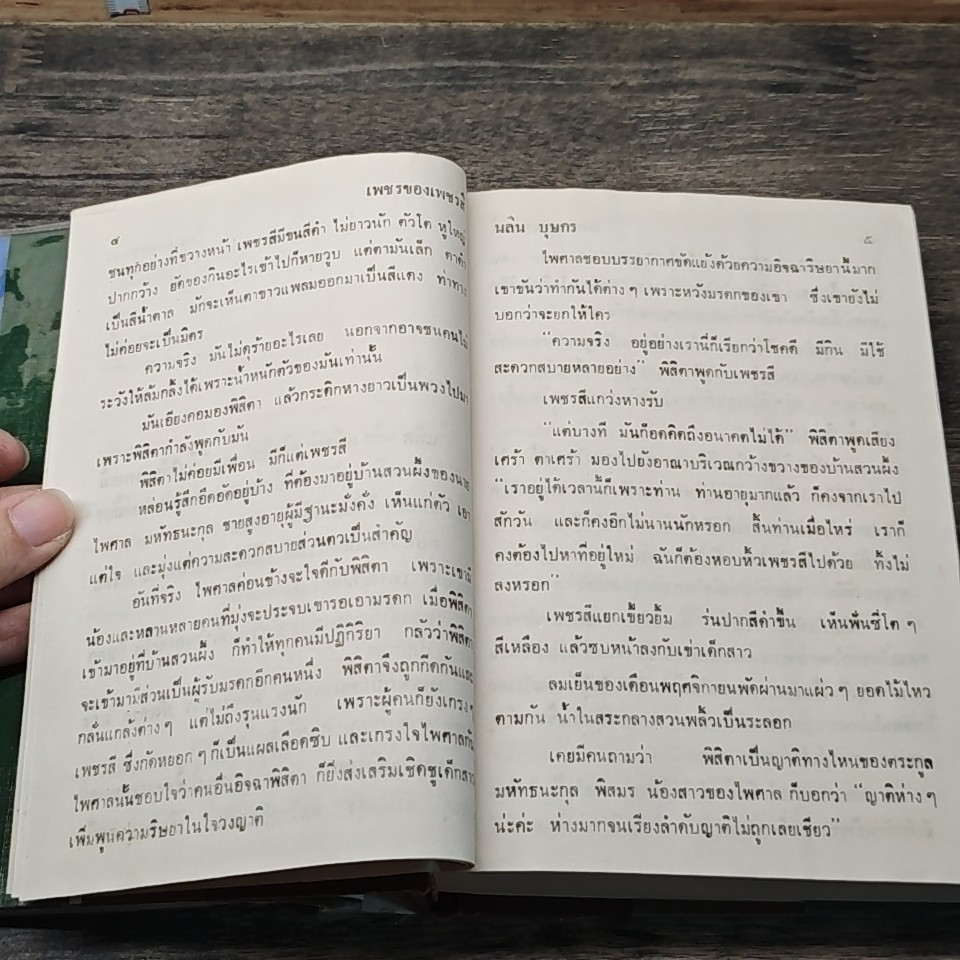 เพชรของเพชรสี
๔
ชนทุกอย่างที่ขวางหน้า เพชรสีมีขนสีดำ ไม่ยาวนัก ตัวโต หูใหญ่
ปากกว้าง ยัดของกินอะไรเข้าไปก็หายวูบ แต่ตามันเล็ก ตาดำ
เป็นสีน้ำตาล มักจะเห็นตาขาวแพลมออกมาเป็นสีแดง ท่าทาง
ไม่ค่อยจะเป็นมิตร
ความจริง มันไม่ดุร้ายอะไรเลย นอกจากอาจชนคนไม่
ระวังให้ล้มกลิ้งได้เพราะน้ำหนักตัวของมันเท่านั้น
มันเอียงคอมองพิสิตา แล้วกระดิกหางยาวเป็นพวงไปมา
เพราะพิสิตากำลังพูดกับมัน
พิสิตาไม่ค่อยมีเพื่อน มีก็แต่เพชรสี
หล่อนรู้สึกอึดอัดอยู่บ้าง ที่ต้องมาอยู่บ้านสวนผึ้งของนาย
ไพศาล มหัทธนะกุล ชายสูงอายุผู้มีฐานะมั่งคั่ง เห็นแก่ตัว เอา
แต่ใจ และมุ่งแต่ความสะดวกสบายส่วนตัวเป็นสำคัญ
อันที่จริง ไพศาลค่อนข้างจะใจดีกับพิสิตา เพราะเขามี
น้องและหลานหลายคนที่มุ่งจะประจบเขารอเอามรดก เมื่อพิสิตา
เข้ามาอยู่ที่บ้านสวนผึ้ง ก็ทำให้ทุกคนมีปฏิกิริยา กลัวว่าพิสิตา
จะเข้ามามีส่วนเป็นผู้รับมรดกอีกคนหนึ่ง พิสิตาจึงถูกกีดกันและ
กลั่นแกล้งต่างๆ แต่ไม่ถึงรุนแรงนัก เพราะผู้คนก็ยังเกรงๆ
เพชรสี ซึ่งกัดหยอกๆ ก็เป็นแผลเลือดซิบ และเกรงใจไพศาลกัน
ไพศาลนั้นชอบใจว่าคนอื่นอิจฉาพิสิตา ก็ยิ่งส่งเสริมเชิดชูเด็กสาว
เพิ่มพูนความริษยาในใจวงญาติ
นลิน บุษกร
๕
ไพศาลชอบบรรยากาศขัดแย้งด้วยความอิจฉาริษยานี้มาก
เขาขันว่าทำกันได้ต่างๆ เพราะหวังมรดกของเขา ซึ่งเขายังไม่
บอกว่าจะยกให้ใคร
“ความจริง อยู่อย่างเรานี่ก็เรียกว่าโชคดี มีกิน มีใช้
สะดวกสบายหลายอย่าง” พิสิตาพูดกับเพชรสี
เพชรสีแกว่งหางรับ
“แต่บางที มันก็อดคิดถึงอนาคตไม่ได้” พิสิตาพูดเสียง
เศร้า ตาเศร้า มองไปยังอาณาบริเวณกว้างขวางของบ้านสวนผึ้ง
“เราอยู่ได้เวลานี้ก็เพราะท่าน ท่านอายุมากแล้ว ก็คงจากเราไป
สักวัน และก็คงอีกไม่นานนักหรอก สิ้นท่านเมื่อไหร่ เราก็
คงต้องไปหาที่อยู่ใหม่ ฉันก็ต้องหอบหิ้วเพชรสีไปด้วย ทิ้งไม่
ลงหรอก”
เพชรสีแยกเขี้ยวยิ้ม ร่นปากสีดำขึ้น เห็นฟันซี่โตๆ
สีเหลือง แล้วซบหน้าลงกับเข่าเด็กสาว
ลมเย็นของเดือนพฤศจิกายนพัดผ่านมาแผ่วๆ ยอดไม้ไหว
ตามกัน น้ำในสระกลางสวนพลิ้วเป็นระลอก
เคยมีคนถามว่า พิสิตาเป็นญาติทางไหนของตระกูล
มหัทธนะกุล พิสมร น้องสาวของไพศาล ก็บอกว่า “ญาติห่างๆ
น่ะค่ะ ห่างมากจนเรียงลำดับญาติไม่ถูกเลยเชียว”